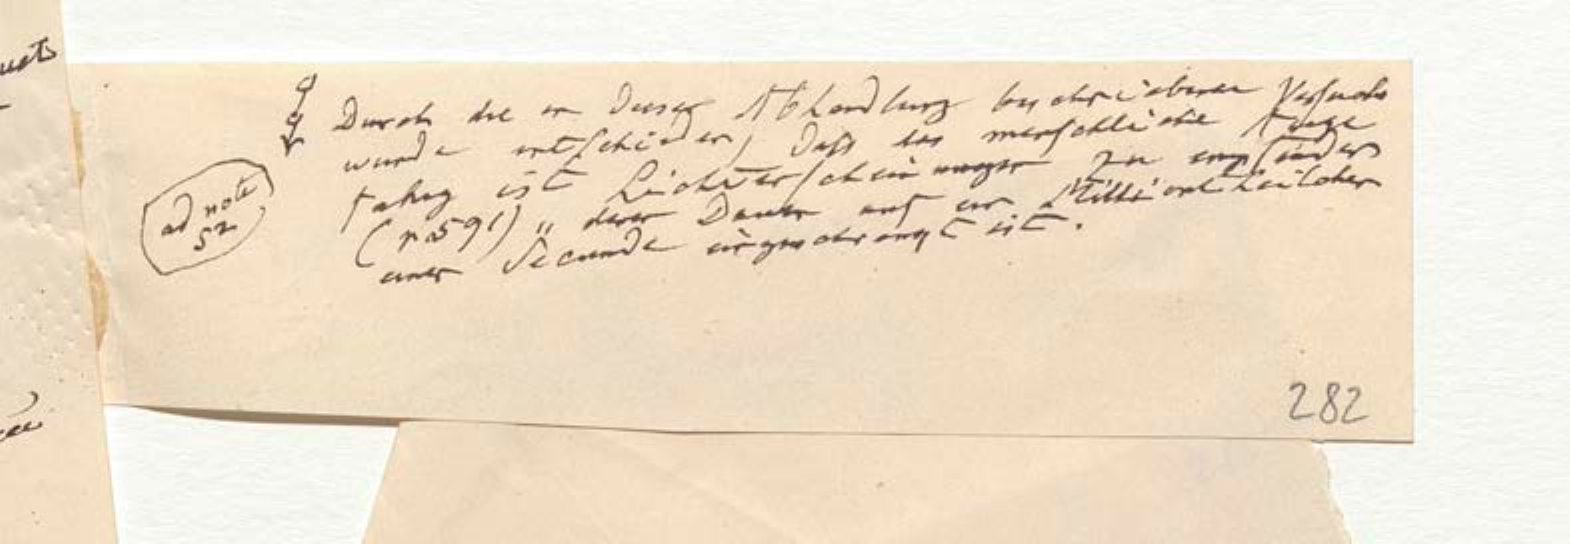 Durch die in dieser Abhandlung beschriebenen Versuche
wurde entschieden, dass das menschliche Auge
fähig ist Lichterscheinungen zu empfinden
(p. 591) „ deren Dauer auf ein Milliontheilchen
einer Secunde eingeschrengt ist.
ad note
52
282